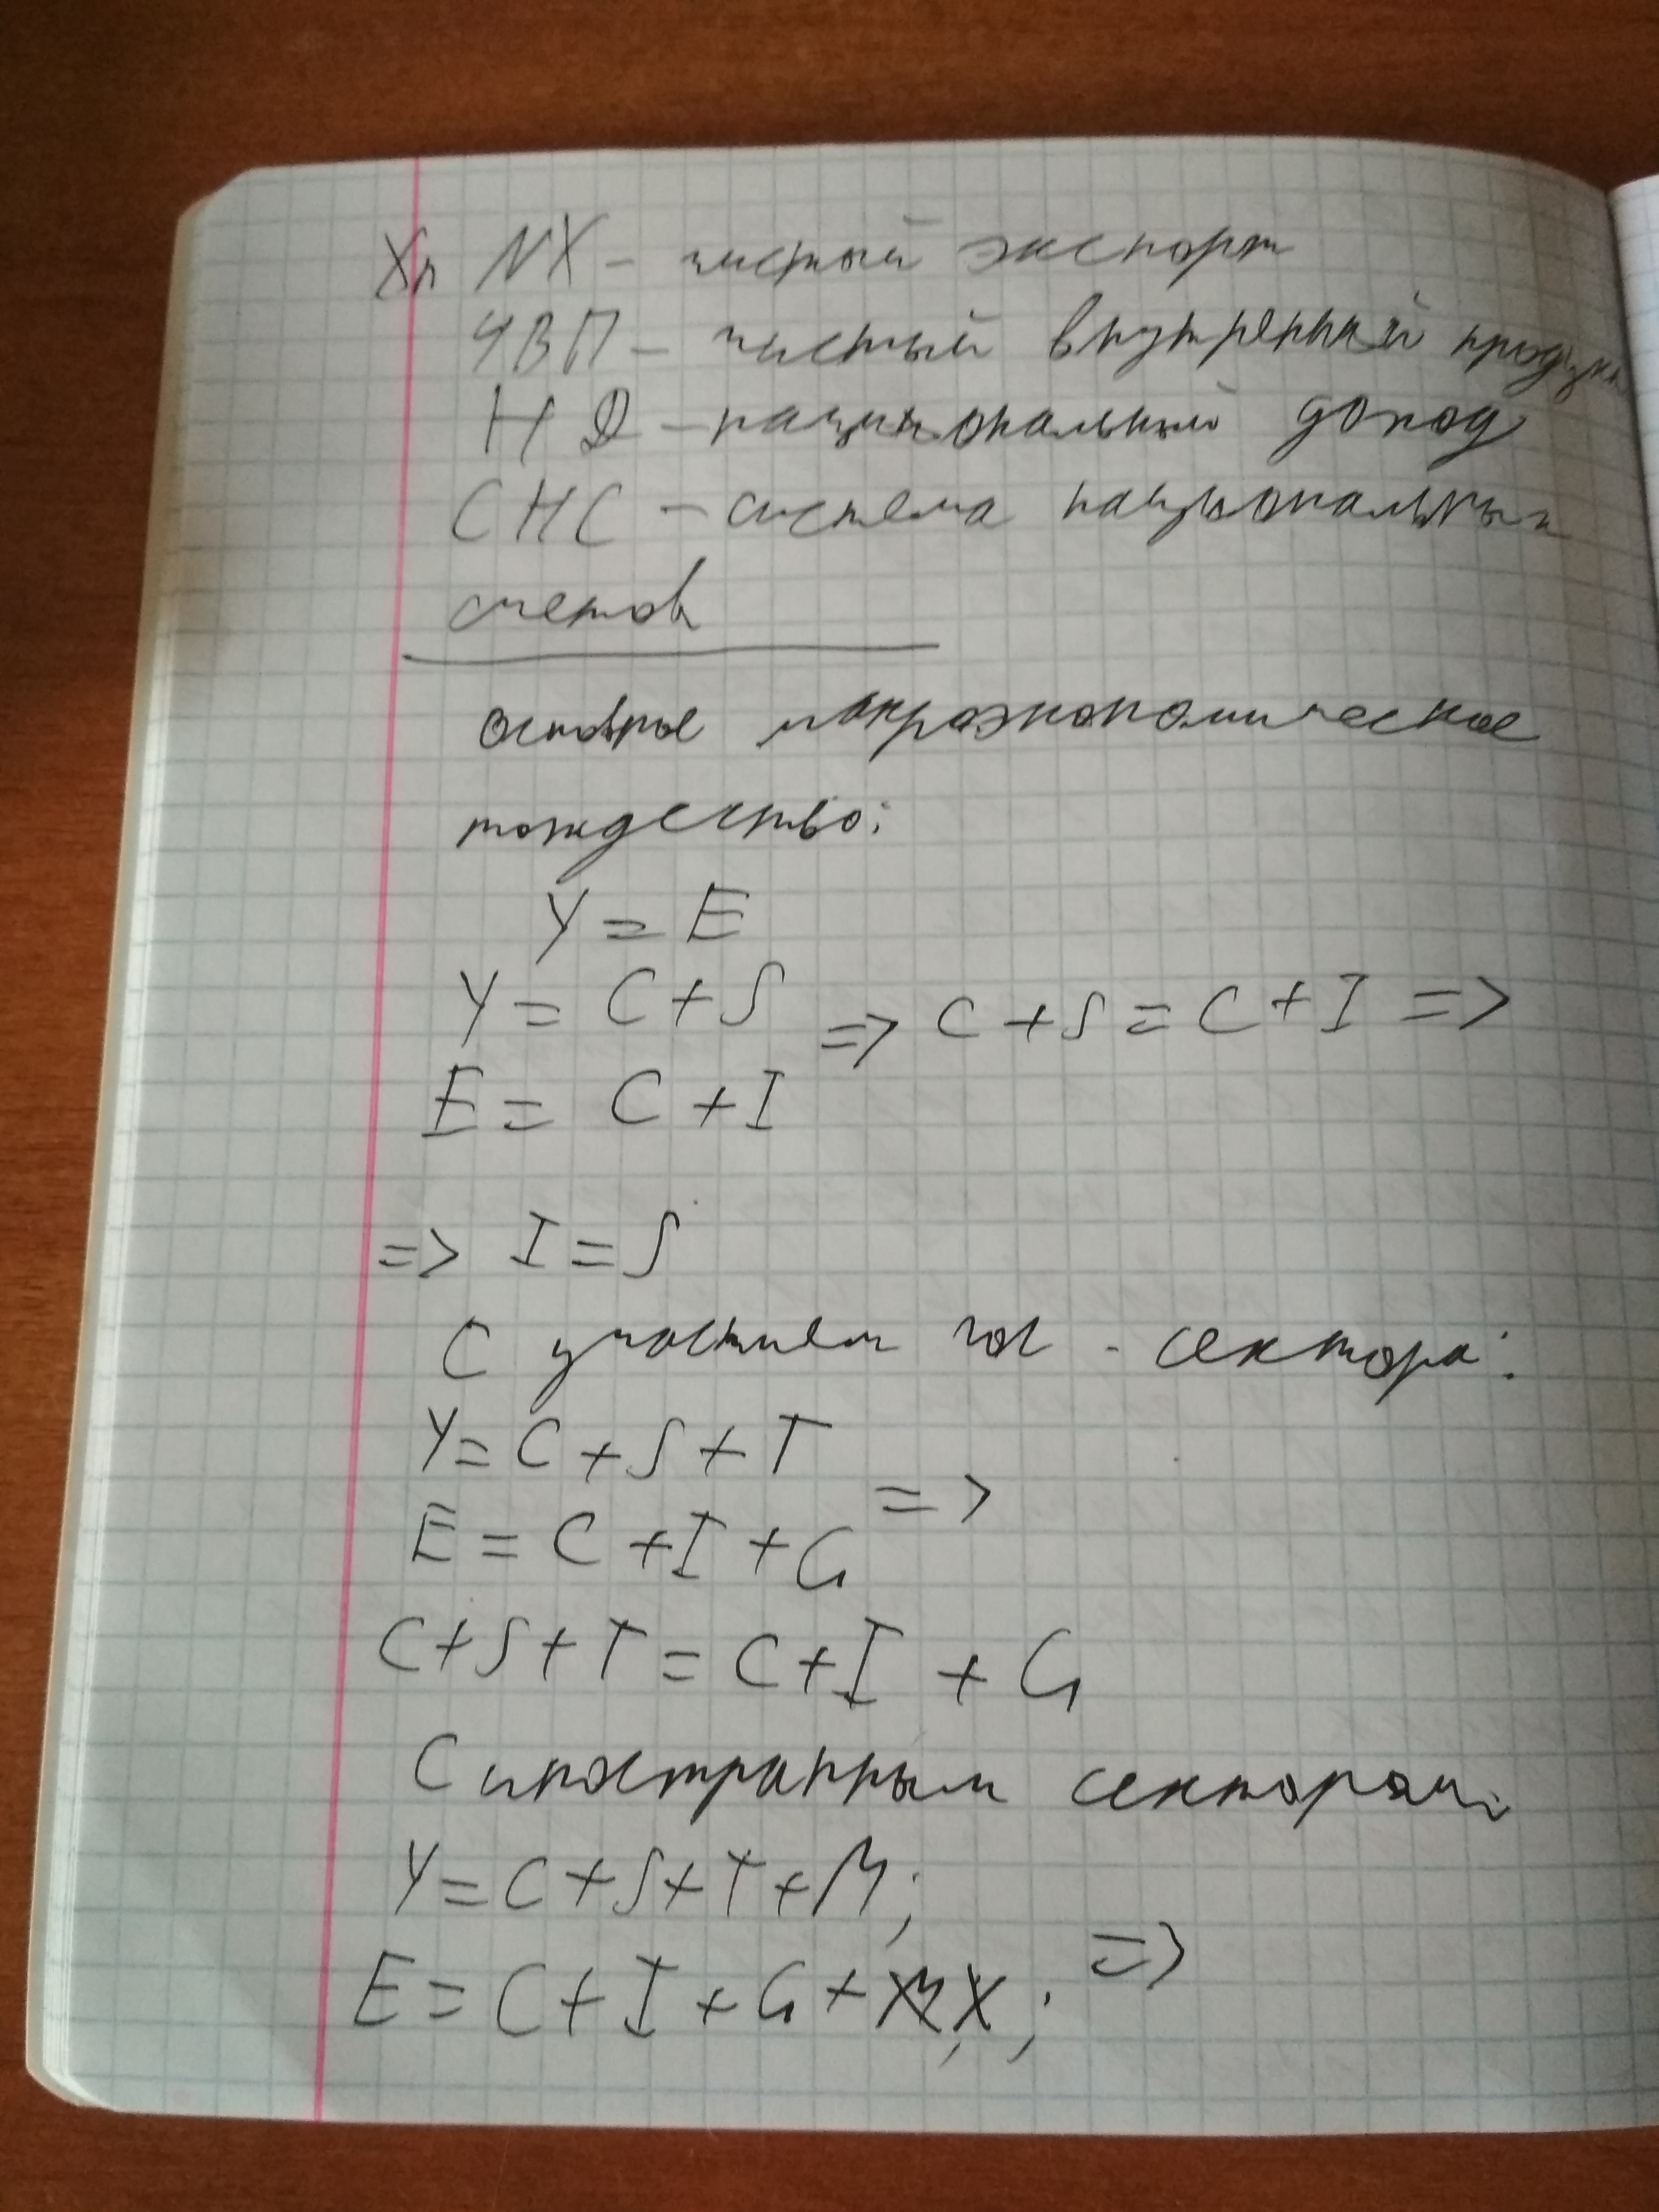 Xn NX – чистый экспорт
ЧВП – чистый внутренний продукт
НД – национальный доход
СНС – система национальных
счетов
основное макроэкономическое
тождество:
Y = E
Y = C + S
=> C + S = C + I =>
E = C + I
=> I = S
С участием гос - сектора:
Y = C + S + T
=>
E = C + I + G
C + S + T = C + I + G
С иностранным сектором:
Y = C + S + T + M;
E = C + I + G + X; =>